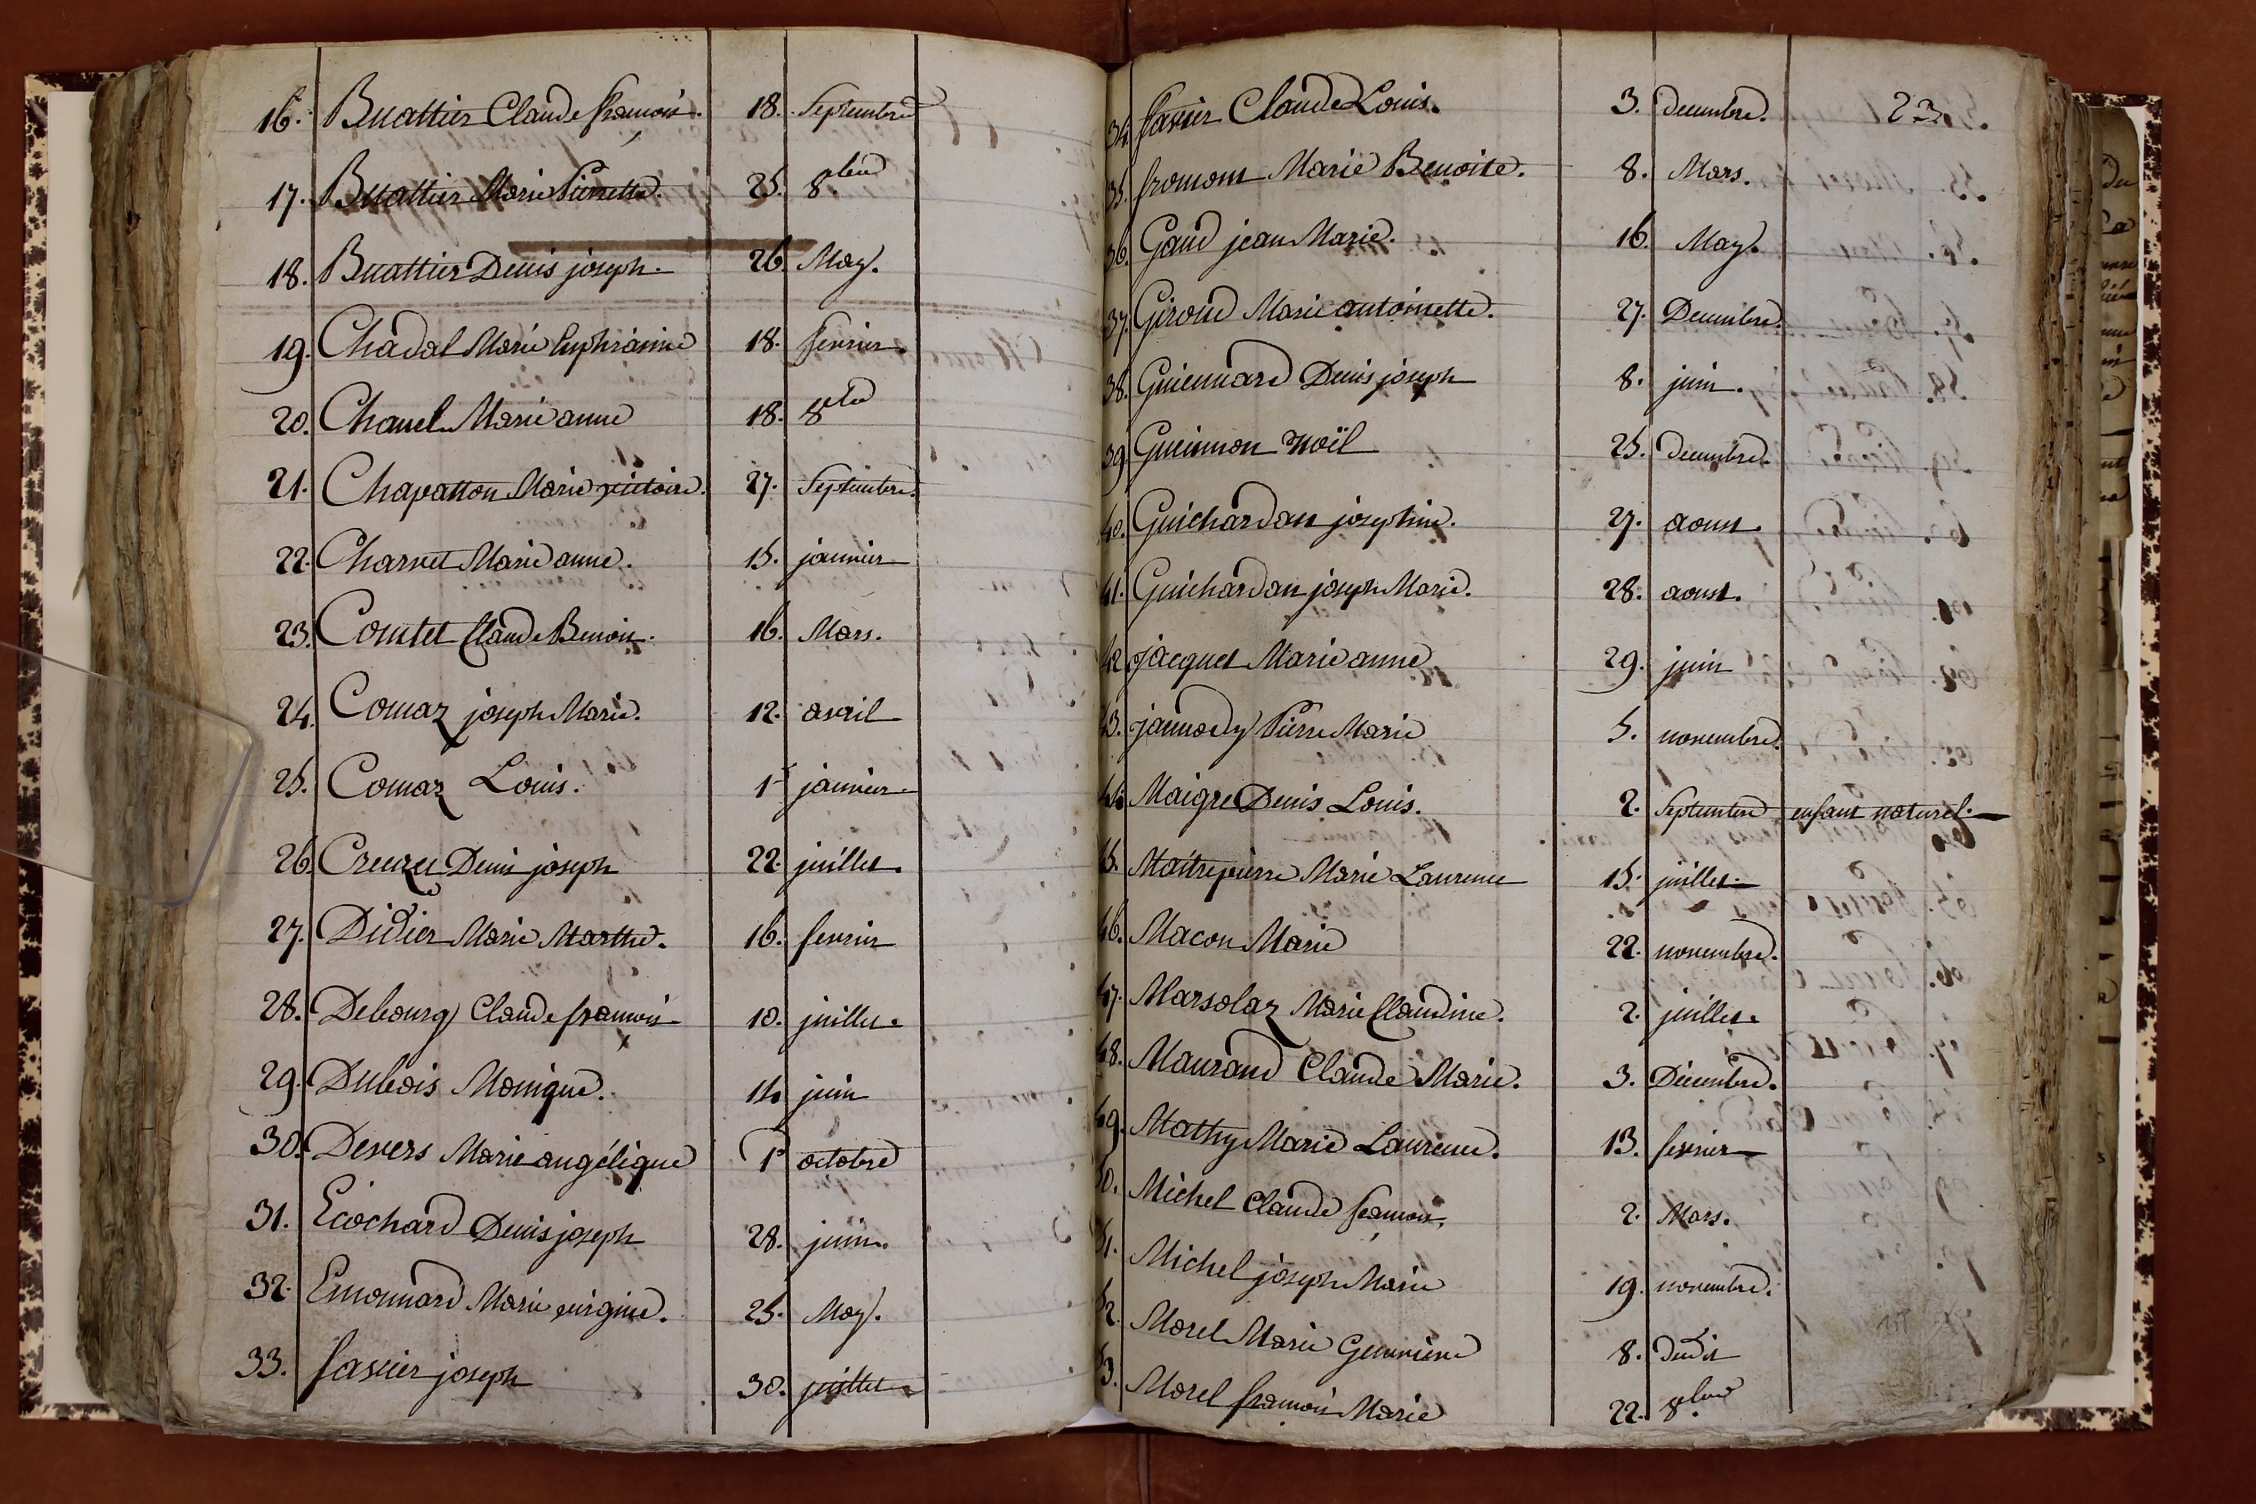 16. Buattier Claude francois. 18. Septembre
17. Buattier Marie Pierrette. 25. 8bre
18. Buattier Denis joseph. 26 May.
19. Chadal Marie Euphrasine 18. fevrier.
20. Chanel Marie anne 18. 8bre
21. Chapatton Marie victoire. 27. Septembre.
22. Charvet Marie anne. 15. janvier
23. Comtet Claude Benoit. 16. Mars.
24. Comaz joseph Marie. 12. avril
25. Comaz Louis. 1r janvier.
26. Creuzet Denis joseph 22. juillet.
27. Didier Marie Marthe. 16. fevrier
28. Debourg Claude francois 10. juillet.
29. Dubois Monique. 14. juin
30. Devers Marie angélique 1r octobre
31. Ecochard Denis joseph 28. juin.
32. Emonnard Marie virginie. 25. May.
33. favier joseph 30. juillet.
23.
34. favier Claude Louis. 3. decembre.
35. fromont Marie Benoite. 8. Mars.
36. Gaud jean Marie. 16. May.
37. Giroud Marie antoinette. 27. Decembre.
38. Guiennard Denis joseph 8. juin.
39. Guiennon noël 25. decembre.
40. Guichardan josephine. 27. aoust.
41. Guichardan joseph Marie. 28. aoust.
42 jacquet Marie anne 29. juin
43. jannody Pierre Marie 5. novembre.
44. Maigre Denis Louis. 2. Septembre enfant naturel.
45. Maitrepierre Marie Laurence 15. juillet.
46. Macon Marie 22. novembre.
47. Marsolaz Marie Claudine. 2. juillet.
48. Maurand Claude Marie. 3. Décembre.
49. Mathy Marie Laurence. 13. fevrier
50. Michel Claude francois, 2. Mars.
51. Michel joseph Marie 19. novembre.
52. Morel Marie Genevieve 8. dudit
53. Morel francois Marie 22. 8bre